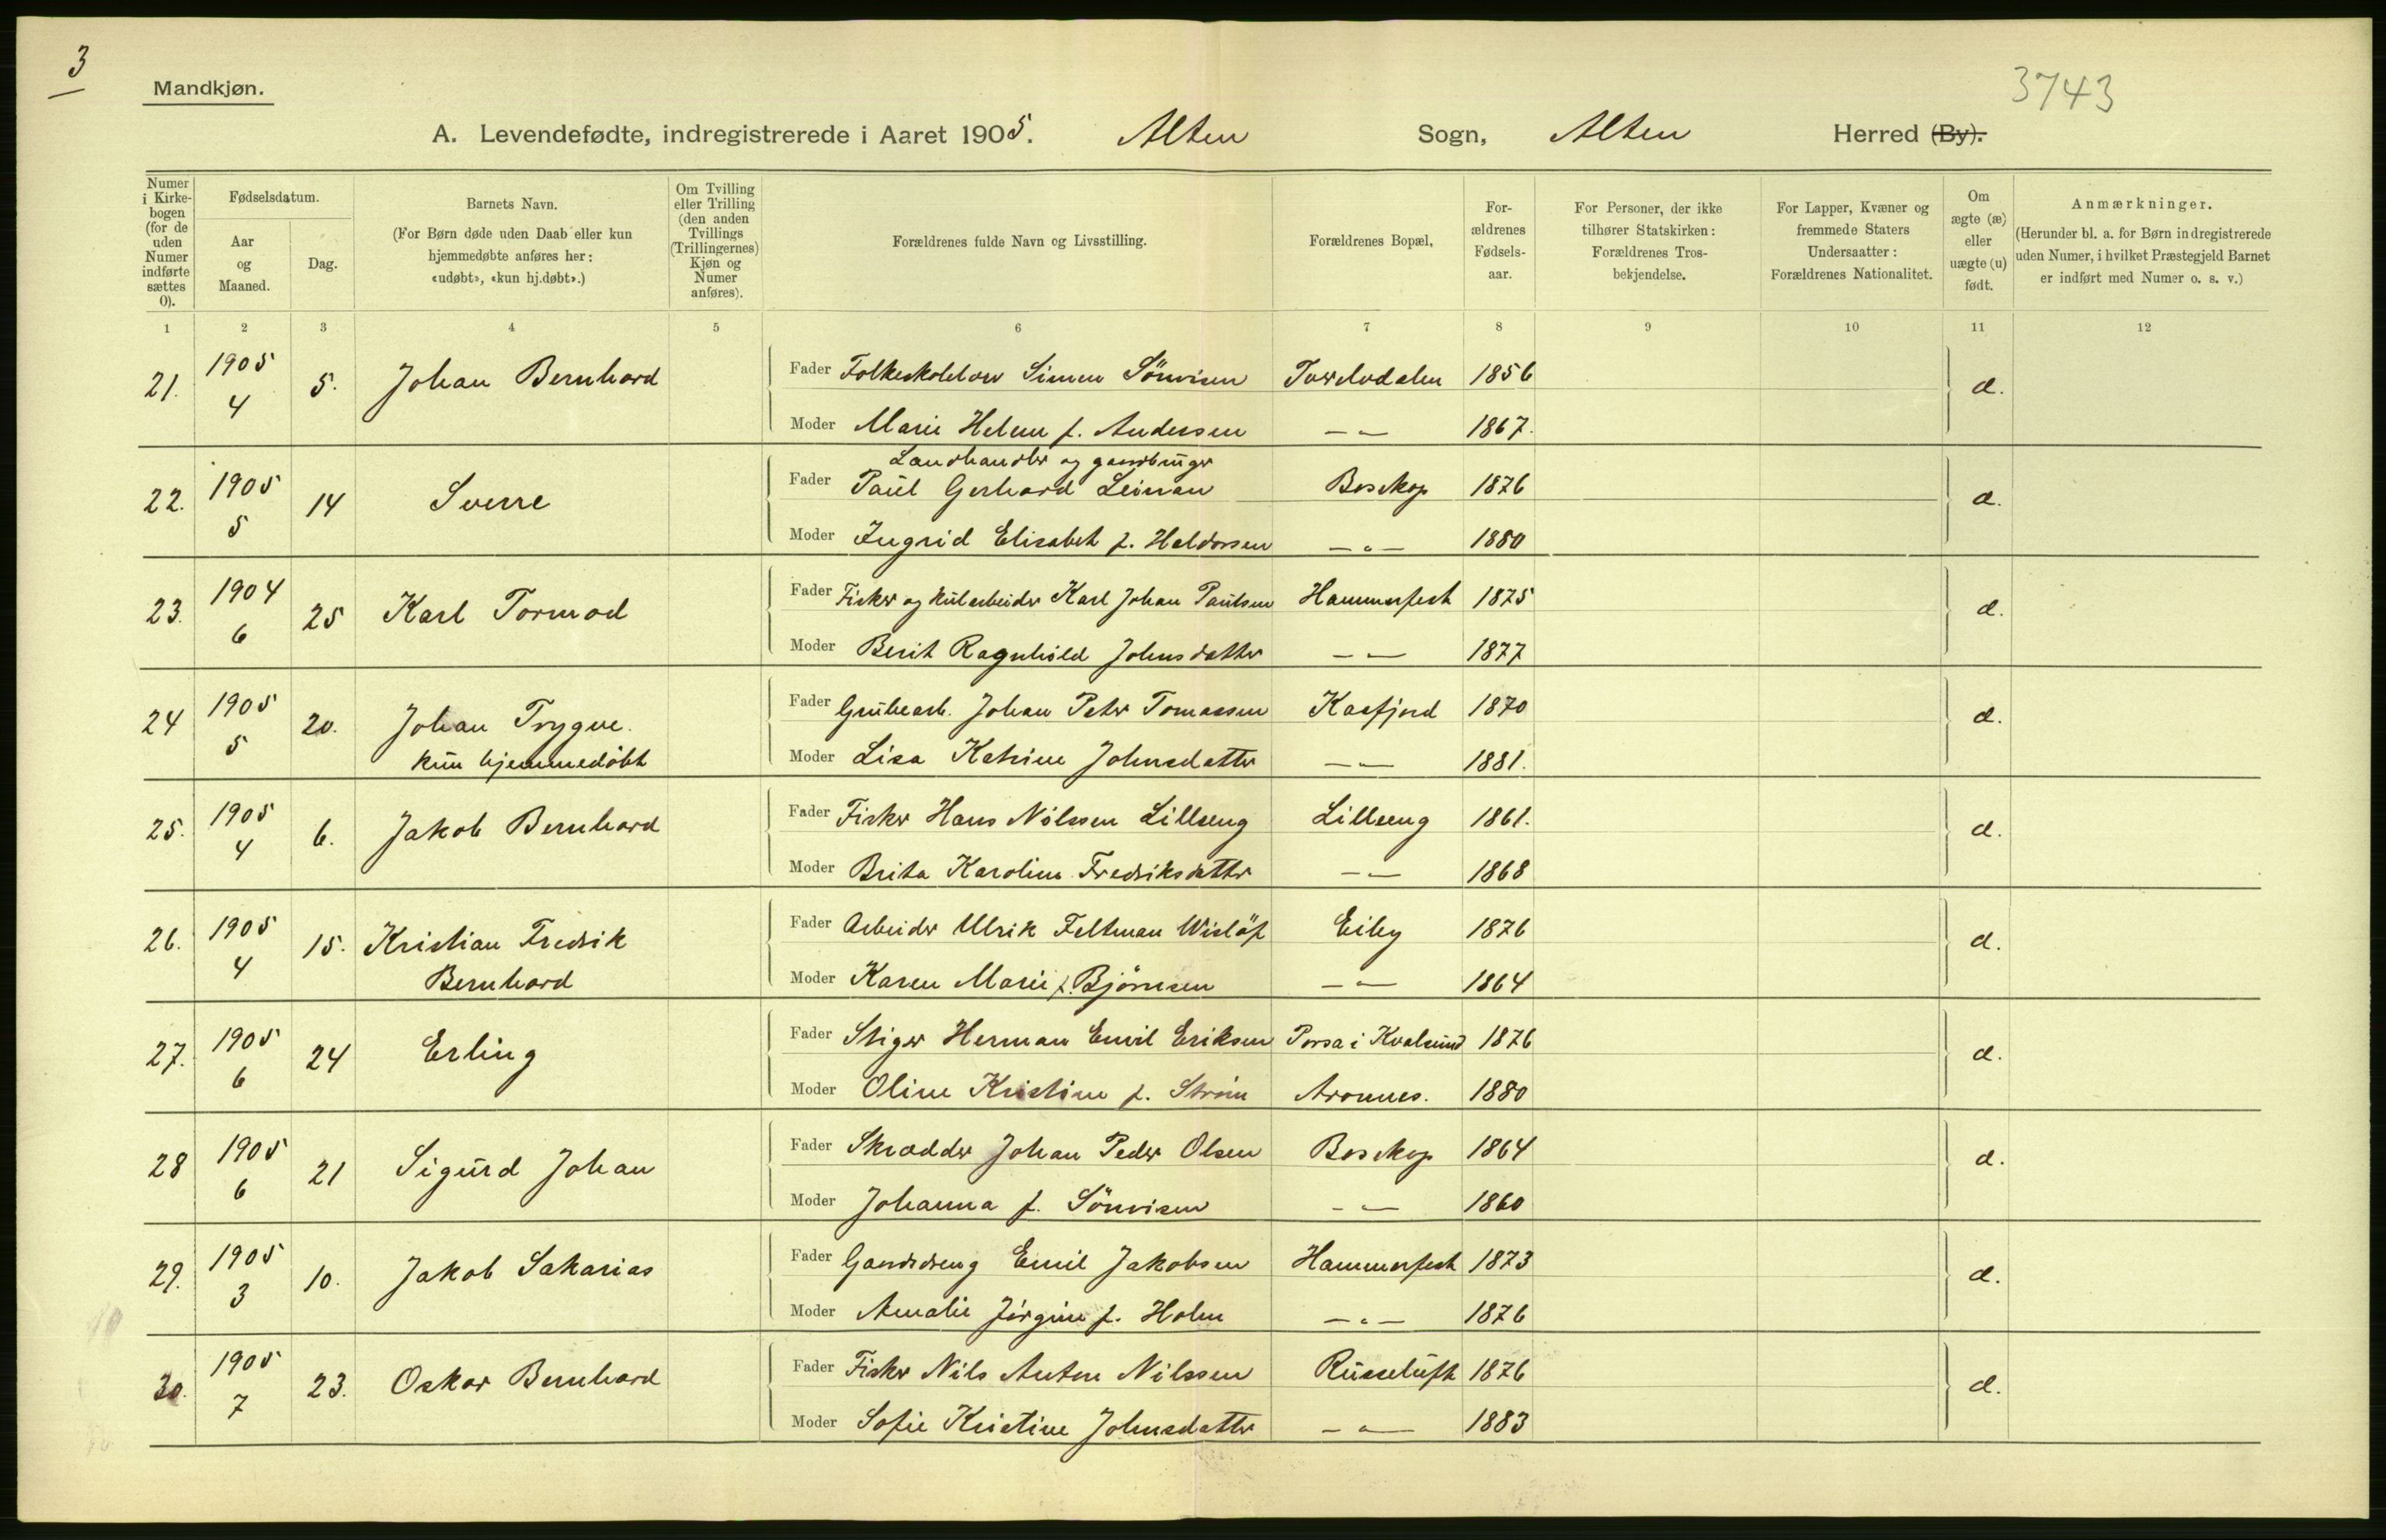 3
Mandkjøn.
3743
A. Levendefødte, indregistrerede i Aaret 1905. Alten Sogn, Alten Herred (By).
Numer i Kirkebogen (for de uden Numer indførte sættes 0).
Fødselsdatum.
Aar og Maaned.
Dag.
Barnets Navn.
(For Børn døde uden Daab eller kun hjemmedøbte anføres her: «udøbt», «kun hj.døbt».)
Om Tvilling eller Trilling (den anden Tvillings (Trillingernes) Kjøn og Numer anføres).
Forældrenes fulde Navn og Livsstilling.
Forældrenes Bopæl,
Forældrenes Fødselsaar.
For Personer, der ikke tilhører Statskirken: Forældrenes Trosbekjendelse.
For Lapper, Kvæner og fremmede Staters Undersaatter: Forældrenes Nationalitet.
Om ægte (æ) eller uægte (u) født.
Anmærkninger.
(Herunder bl. a. for Børn indregistrerede uden Numer, i hvilket Præstegjeld Barnet er indført med Numer o. s. v.)
1 2 3 4 5 6 7 8 9 10 11 12
21. 1905 4 5. Johan Bernhard Fader Simon Sönvisen 1856 æ.
Moder Marie Helene f. Andersen – " – 1867.
Landhandler og gaardbruger
22. 1905 5 14 Sverre Fader Paul Gerhard Leinan Bossekop 1876 æ.
Moder Ingrid Elisabet f. Haldorsen – " – 1880
23. 1904 6 25 Karl Tormod Fader Fisker og kularbeider Karl Johan Paulsen Hammerfest 1875 æ.
Moder Berit Ragnhild Johnsdatter – " – 1877
24 1905 5 20. Johan Trygve. Fader Grubearb. Johan Peter Tomassen Kaafjord 1870 æ.
kun hjemmedöbt Moder Lisa Katrine Johnsdatter – " – 1881.
25. 1905 4 6. Jakob Bernhard Fader Fisker Hans Nilssen Lilleeng Lilleeng 1861. æ.
Moder Brita Karoline Fredriksdatter – " – 1868
26. 1905 4 15. Kristian Fredrik Fader Arbeider Ulrik Feltman Wislöf Eiby 1876 æ.
Bernhard Moder Karen Marie f. Björnsen – " – 1864
27. 1905 6 24 Erling Fader Stiger Herman Emil Eriksen Porsa i Kvalsund 1876 æ.
Moder Oline Kristine f. Ström Aronnes. 1880
28 1905 6 21 Sigurd Johan Fader Skrædder Johan Peder Olsen Bossekop 1864 æ.
Moder Johanna f. Sönvisen – " – 1860
29. 1905 3 10. Jakob Sakarias Fader Gaardsdreng Emil Jakobsen Hammerfest 1873 æ.
Moder Amalie Jörgine f. Holm – " – 1876
30. 1905 7 23. Oskar Bernhard Fader Fisker Nils Anton Nilssen Russeluft 1876 æ.
Moder Sofie Kristine Johnsdatter – " – 1883